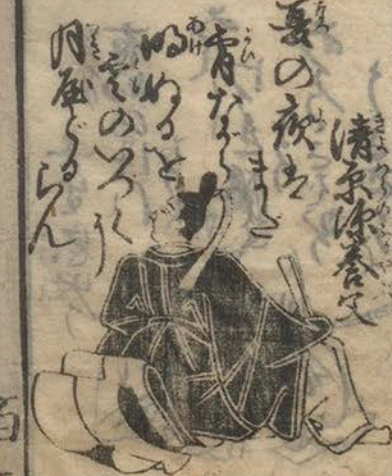 清原深養父
夏の夜は
まだ
宵ながら
明ぬるを
雲のいづくに
月屋どるらん